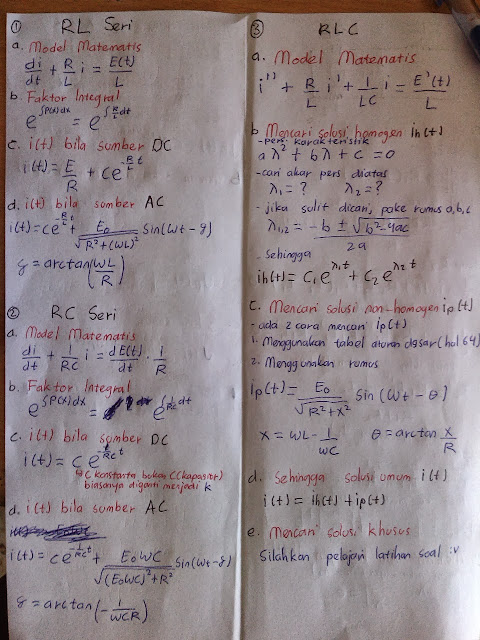 ① RL Seri
a. Model Matematis
di/dt + R/L i = E(t)/L
b. Faktor Integral
e^∫P(x)dx = e^∫R/L dt
c. i(t) bila sumber DC
i(t) = E/R + c e^(-R/L t)
d. i(t) bila sumber AC
i(t) = c e^(-R/L t) + E₀/√(R² + (WL)²) Sin(Wt - φ)
φ = arctan(WL/R)
② RC Seri
a. Model Matematis
di/dt + 1/RC i = dE(t)/dt · 1/R
b. Faktor Integral
e^∫P(x)dx = e^∫1/RC dt
c. i(t) bila sumber DC
i(t) = C e^(-1/RC t)
C konstanta bukan C (kapasitor)
biasanya diganti menjadi k
d. i(t) bila sumber AC
i(t) = c e^(-1/RC t) + E₀WC/√((E₀WC)² + R²) Sin(Wt - φ)
φ = arctan(-1/WCR)
③ RLC
a. Model Matematis
i'' + R/L i' + 1/LC i = E'(t)/L
b. Mencari solusi homogen ih(t)
- pers. karakteristik
a λ² + b λ + c = 0
- cari akar pers diatas
λ₁ = ? λ₂ = ?
- jika sulit dicari, pake rumus a,b,c
λ₁,₂ = -b ± √(b² - 4ac) / 2a
- Sehingga
ih(t) = C₁ e^(λ₁t) + C₂ e^(λ₂t)
C. Mencari solusi non-homogen ip(t)
- ada 2 cara mencari ip(t)
1. Menggunakan tabel aturan dasar (hal 64)
2. Menggunakan rumus
Ip(t) = E₀/√(R² + X²) Sin (Wt - θ)
X = WL - 1/WC θ = arctan X/R
d. Sehingga solusi umum i(t)
i(t) = ih(t) + ip(t)
e. Mencari solusi khusus
Silahkan pelajari latihan soal :v